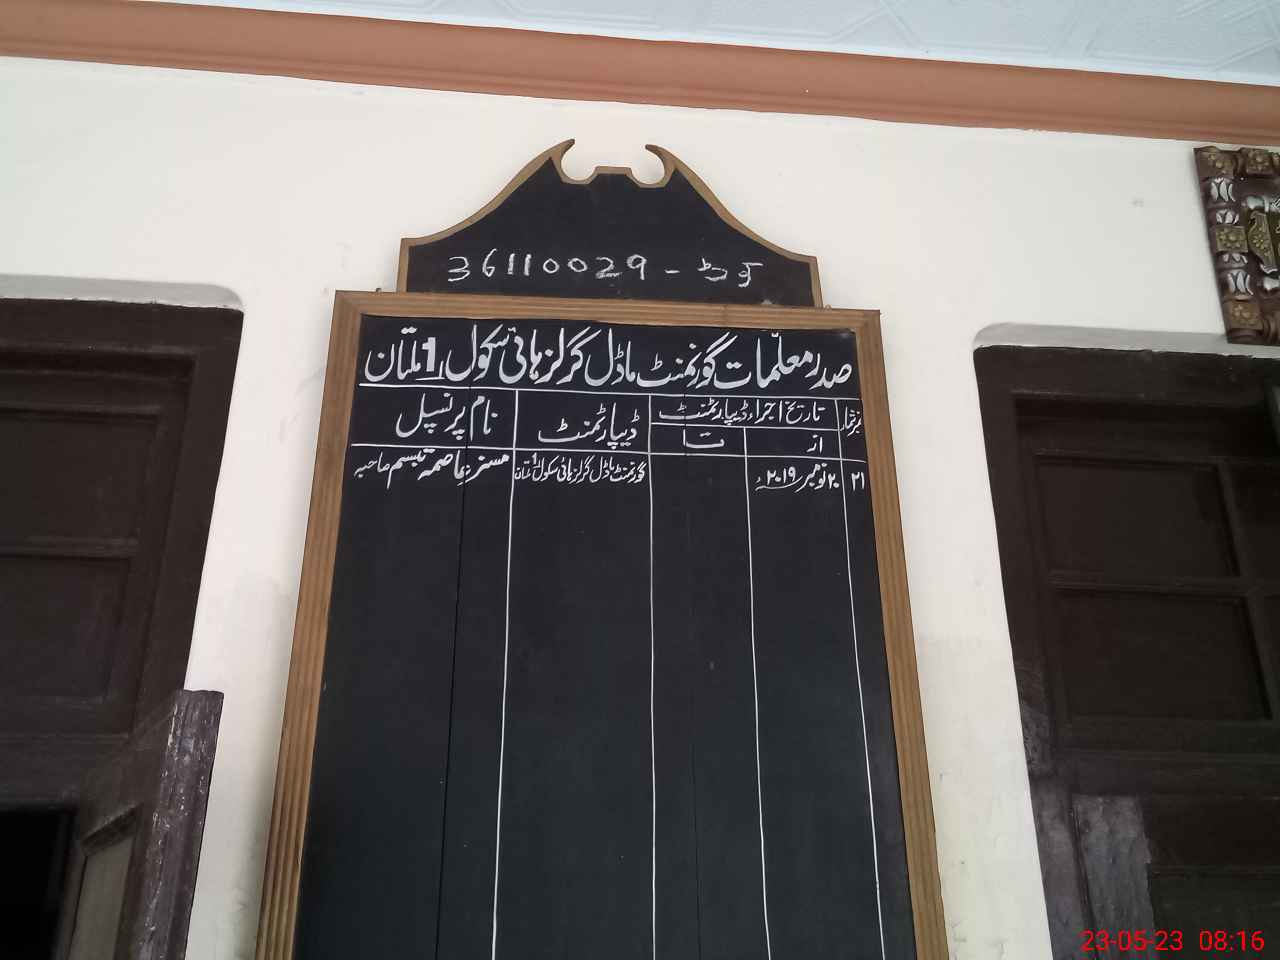 36110029 - کوڈ
صدر معلمات گورنمنٹ ماڈل گرلز ہائی سکول 1 ملتان
نمبر شمار تاریخ اجراء ڈیپارٹمنٹ ڈیپارٹمنٹ نام پرنسپل
از تا
۲۱ ۲۰ نومبر ۲۰۱۹ء گورنمنٹ ماڈل گرلز ہائی سکول 1 ملتان مسز عاصمہ تبسم صاحبہ
23-05-23 08:16